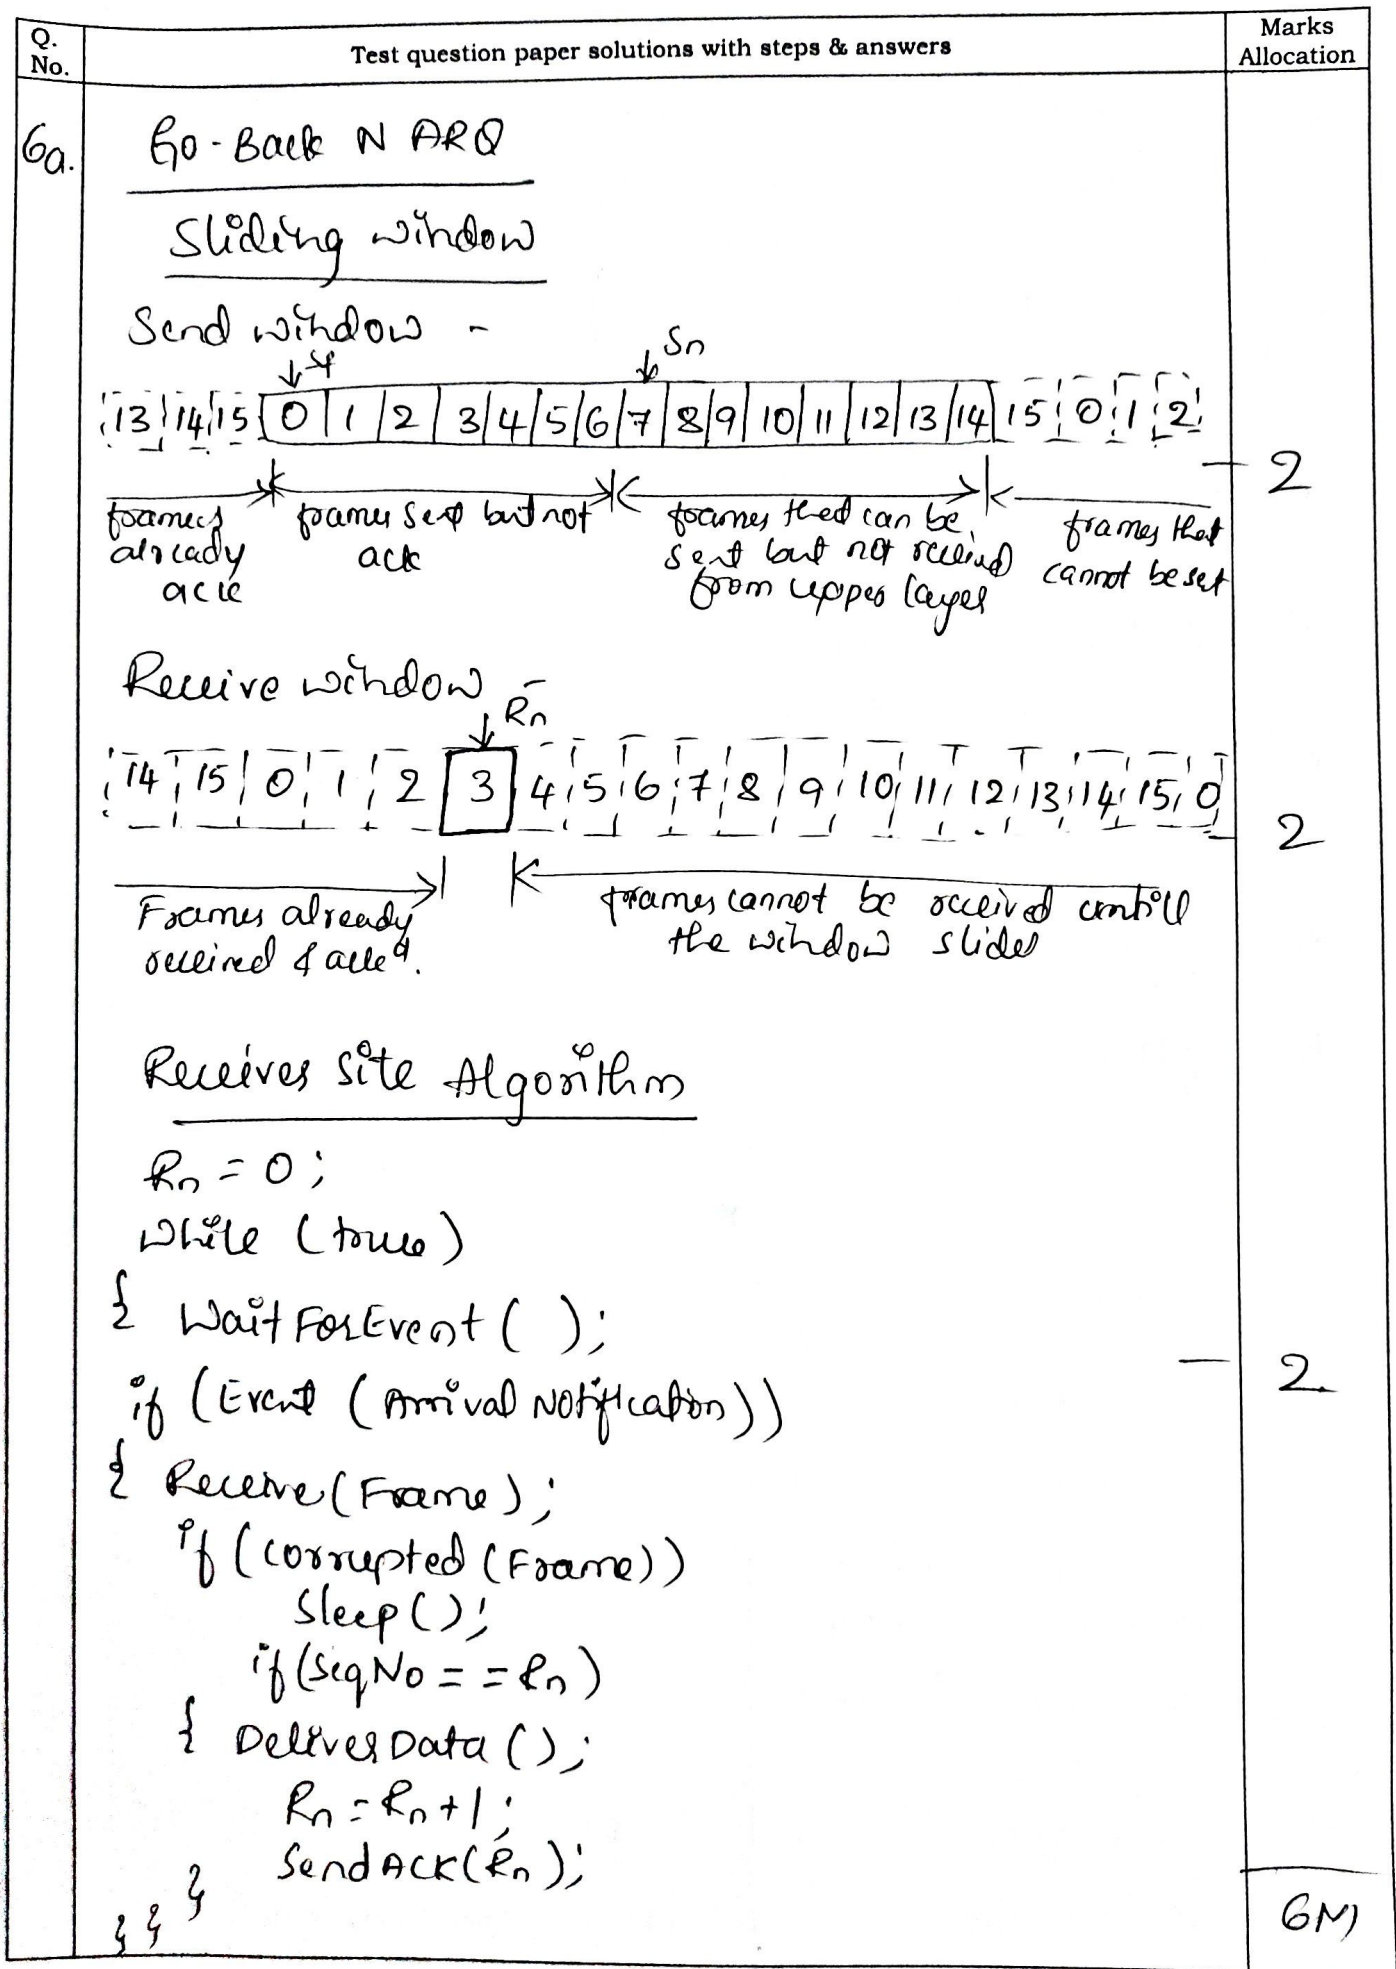 Q. No.
Test question paper solutions with steps & answers
Marks Allocation
6a.
Go-Back N ARQ
Sliding window
Send window -
Sf
Sn
13 14 15 0 1 2 3 4 5 6 7 8 9 10 11 12 13 14 15 0 1 2
2
frames already ack
frames sent but not ack
frames that can be sent but not received from upper layer
frames that cannot be set
Receive window -
Rn
14 15 0 1 2 3 4 5 6 7 8 9 10 11 12 13 14 15 0
2
Frames already received & acked.
frames cannot be received untill the window slides
Receiver Site Algorithm
Rn = 0;
while (true)
{ Wait For Event ( );
if (Event (Arrival Notification))
2
{ Receive (Frame);
if (corrupted (Frame))
Sleep ();
if (SeqNo == Rn)
{ Deliver Data ();
Rn = Rn + 1;
Send ACK (Rn);
}
} }
6M